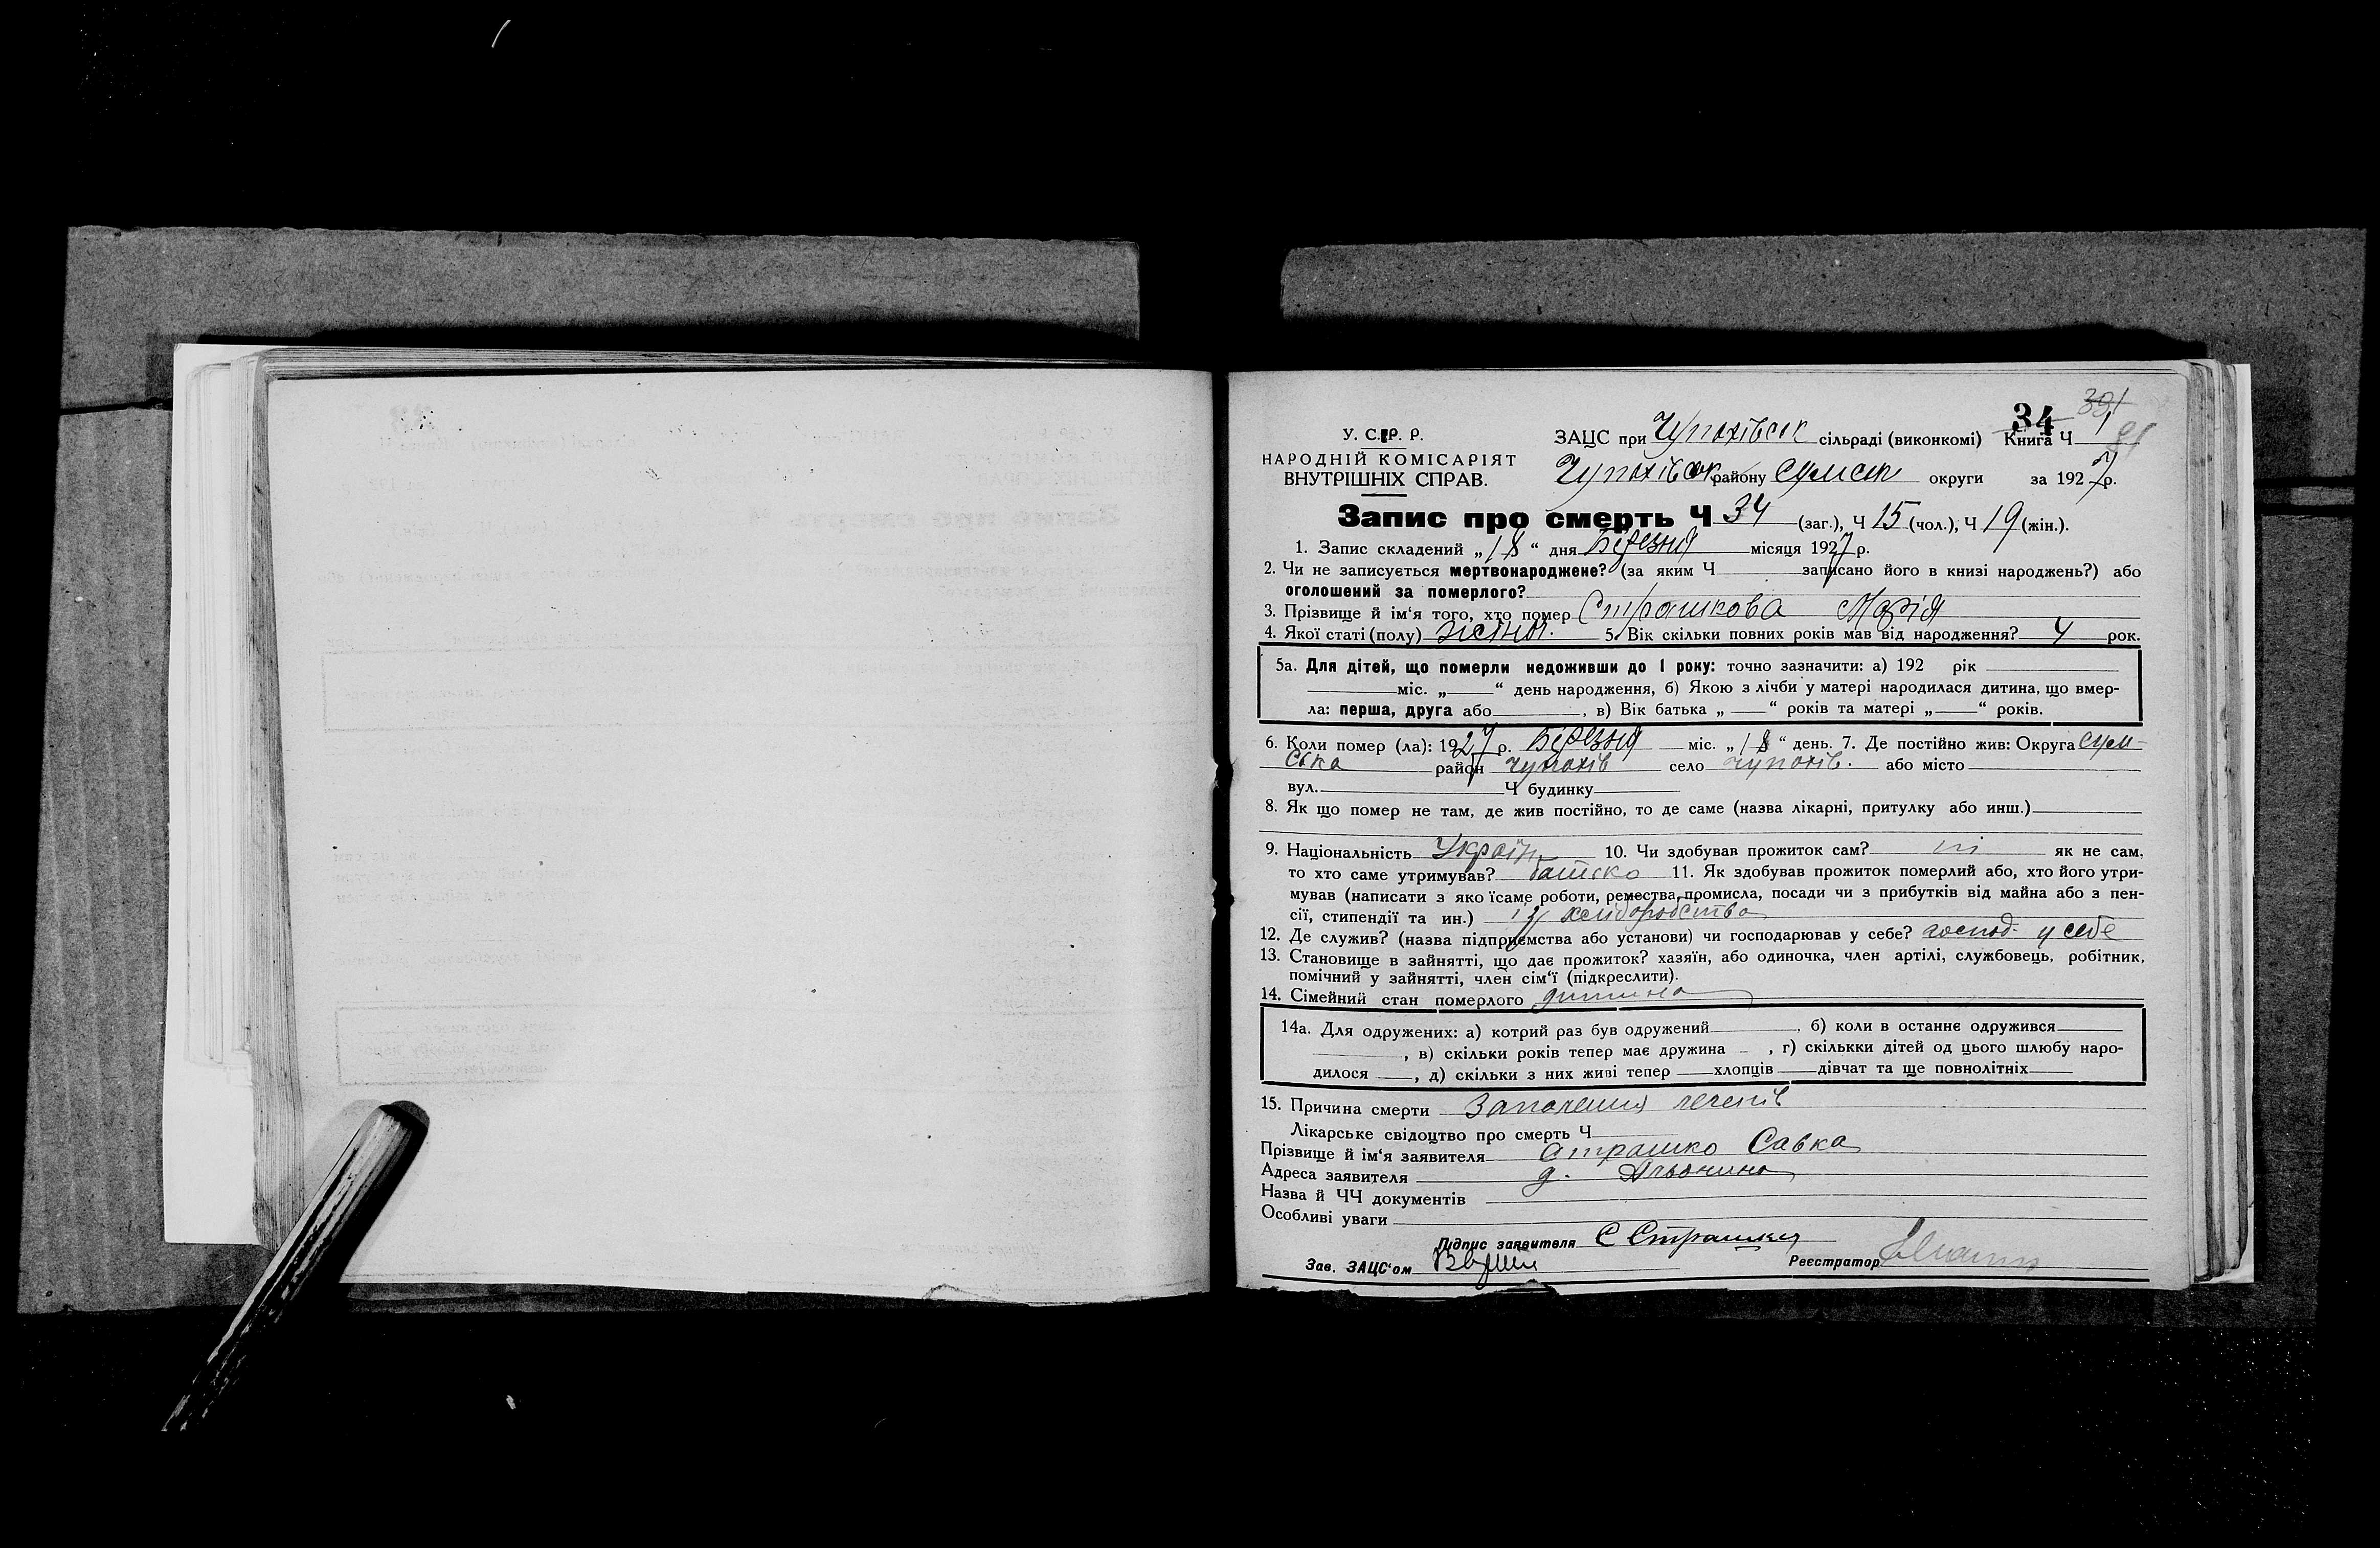 34 391
У. С. Р. Р. ЗАЦС при Чупахівськ сільраді (виконкомі) Книга Ч 1
НАРОДНІЙ КОМІСАРІЯТ
ВНУТРІШНІХ СПРАВ. Чупахівськ району Сумськ округи за 1927 р.
Запис про смерть Ч 34 (заг.), Ч 15 (чол.), Ч 19 (жін.).
1. Запис складений „18“ дня Березня місяця 1927 р.
2. Чи не записується мертвонароджене? (за яким Ч записано його в книзі народжень?) або
оголошений за померлого?
3. Прізвище й ім‘я того, хто помер Страшкова Марія
4. Якої статі (полу) жіноч. 5. Вік скільки повних років мав від народження? 4 рок.
5а. Для дітей, що померли недоживши до 1 року: точно зазначити: а) 192 рік
міс. „ “ день народження, б) Якою з лічби у матері народилася дитина, що вмер-
ла: перша, друга або , в) Вік батька „ “ років та матері „ “ років.
6. Коли помер (ла): 1927 р. Березня міс. „18“ день. 7. Де постійно жив: Округа Сум-
ська район Чупахів село Чупахів. або місто
вул. Ч будинку
8. Як що помер не там, де жив постійно, то де саме (назва лікарні, притулку або инш.)
9. Національність Україн. 10. Чи здобував прожиток сам? ні як не сам,
то хто саме утримував? батько 11. Як здобував прожиток померлий або, хто його утри-
мував (написати з яко їсаме роботи, ремества, промисла, посади чи з прибутків від майна або з пен-
сії, стипендії та ин.) із хліборобства
12. Де служив? (назва підприємства або установи) чи господарював у себе? господ. у себе
13. Становище в зайнятті, що дає прожиток? хазяїн, або одиночка, член артілі, службовець, робітник,
помічний у зайнятті, член сім‘ї (підкреслити).
14. Сімейний стан померлого дитина
14а. Для одружених: а) котрий раз був одружений , б) коли в останнє одружився
, в) скільки років тепер має дружина , г) скількки дітей од цього шлюбу наро-
дилося , д) скільки з них живі тепер хлопців дівчат та ще повнолітніх
15. Причина смерти Запалення легенів
Лікарське свідоцтво про смерть Ч
Прізвище й ім‘я заявителя Страшко Савка
Адреса заявителя
Назва й ЧЧ документів
Особливі уваги
Підпис заявителя С Страшко
Зав. ЗАЦС‘ом Реєстратор